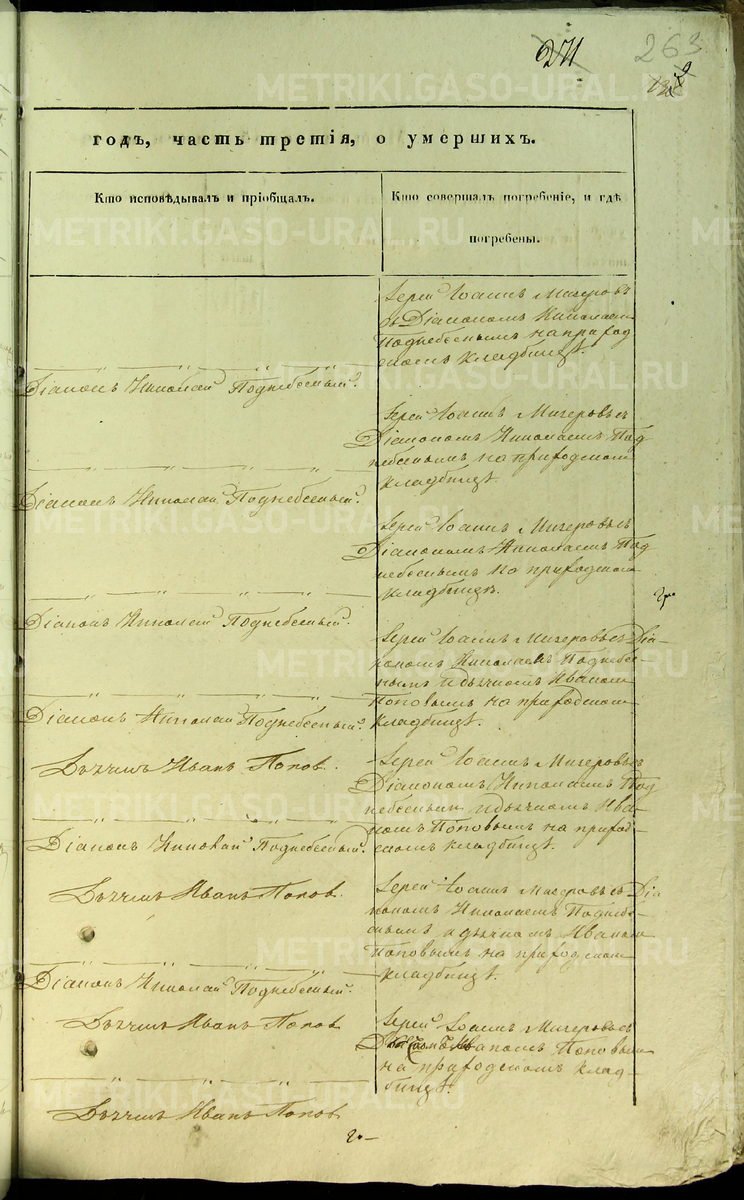 271
263
годъ, часть третія, о умершихъ.
Кто исповѣдывалъ и пріобщалъ.
Кто совершалъ погребеніе, и гдѣ
погребены.
Іерей Іоаннъ Мизеровъ
съ Діакономъ Николаемъ
Поднебеснымъ на приход
скомъ кладбищѣ.
Діаконъ Николай Поднебесный.
Іерей Іоаннъ Мизеровъ съ
Діакономъ Николаемъ Под
небеснымъ на приходскомъ
кладбищѣ.
Діаконъ Николай Поднебесный.
Іерей Іоаннъ Мизеровъ съ
Діакономъ Николаемъ Под
небеснымъ на приходскомъ
кладбищѣ.
Діаконъ Николай Поднебесный.
Іерей Іоаннъ Мизеровъ съ Діа-
кономъ Николаемъ Поднебес-
нымъ и дьячкомъ Иваномъ
Поповымъ на приходскомъ
кладбищѣ.
Діаконъ Николай Поднебесный.
Дьячекъ Иванъ Попов.
Іерей Іоаннъ Мизеровъ съ
Діакономъ Николаемъ Под
небеснымъ и дьячкомъ Ива-
номъ Поповымъ на приход-
скомъ кладбищѣ.
Діаконъ Николай Поднебесный.
Дьячекъ Иванъ Попов.
Іерей Іоаннъ Мизеровъ съ Діа
кономъ Николаемъ Поднебе-
снымъ и дьячкомъ Иваномъ
Поповымъ на приходскомъ
кладбищѣ.
Діаконъ Николай Поднебесный.
Дьячекъ Иванъ Попов
Іерей Іоаннъ Мизеровъ съ
Иваномъ Поповымъ
на приходскомъ клад-
бищѣ.
Дьячекъ Иванъ Попов
METRIKI.GASO-URAL.RU